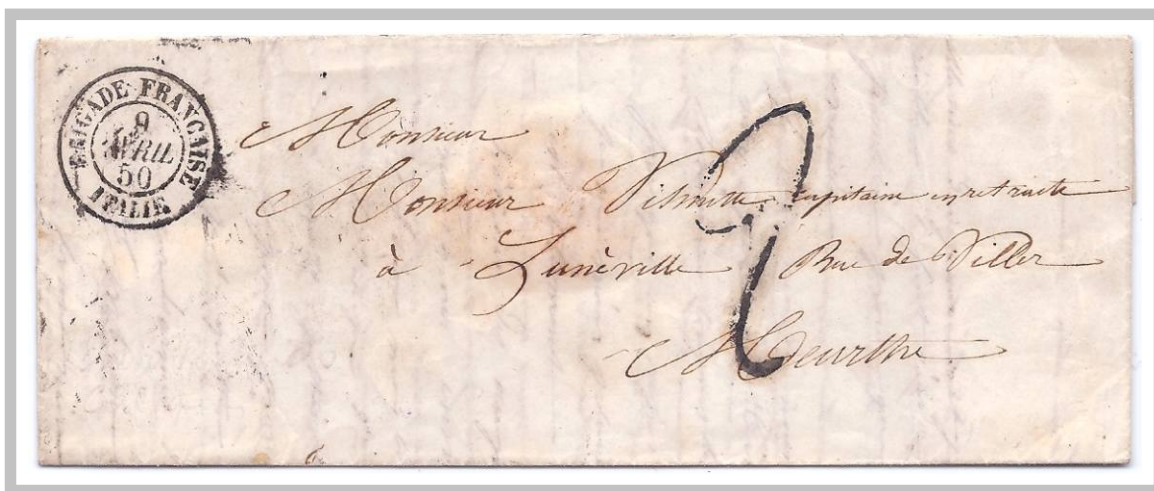 BRIGADE FRANCAISE
9
AVRIL
50
ITALIE
Monsieur
Monsieur capitaine en retraite
à Lunéville Rue de Viller
Meurthe
2